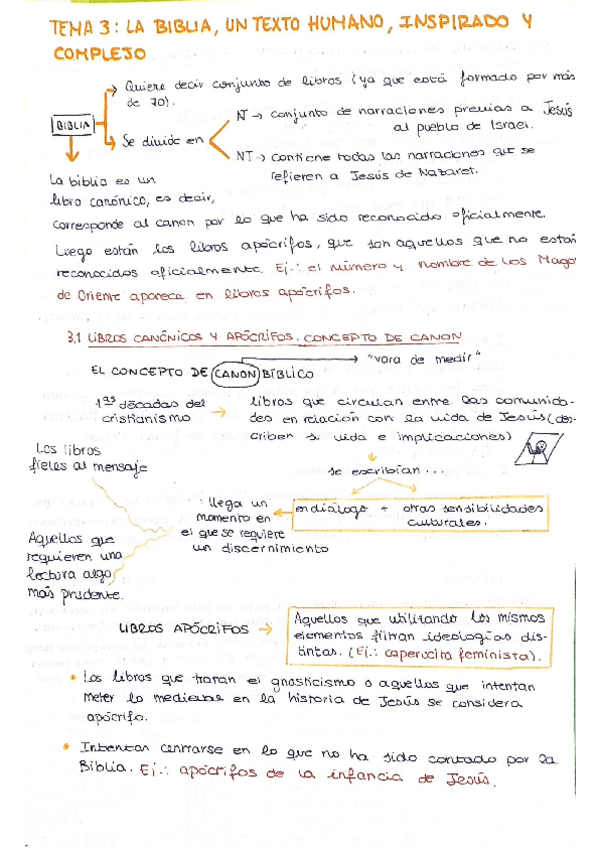 TEMA 3: LA BIBLIA, UN TEXTO HUMANO, INSPIRADO Y
COMPLEJO
BIBLIA
Quiere decir conjunto de libros (ya que está formado por más
de 70).
Se divide en
NT → conjunto de narraciones previas a Jesús
al pueblo de Israel.
NT → contiene todas las narraciones que se
refieren a Jesús de Nazaret.
La biblia es un
libro canónico, es decir,
corresponde al canon por lo que ha sido reconocido oficialmente.
Luego están los libros apócrifos, que son aquellos que no están
reconocidos oficialmente. Ej.: el número y nombre de los Magos
de Oriente aparece en libros apócrifos.
3.1 LIBROS CANÓNICOS Y APÓCRIFOS. CONCEPTO DE CANON
→ "vara de medir"
EL CONCEPTO DE CANON BÍBLICO
1as décadas del
cristianismo →
libros que circulan entre las comunida-
des en relación con la vida de Jesús (des-
criben su vida e implicaciones)
se escribían ...
en diálogo + otras sensibilidades
culturales.
llega un
momento en
el que se requiere
un discernimiento
Los libros
fieles al mensaje
Aquellos que
requieren una
lectura algo
más prudente.
LIBROS APÓCRIFOS →
Aquellos que utilizando los mismos
elementos filtran ideologías dis-
tintas. (Ej.: caperucita feminista).
• Los libros que tratan el gnosticismo o aquellos que intentan
meter lo medieval en la historia de Jesús se considera
apócrifo.
• Intentan centrarse en lo que no ha sido contado por la
Biblia. Ej.: apócrifos de la infancia de Jesús.